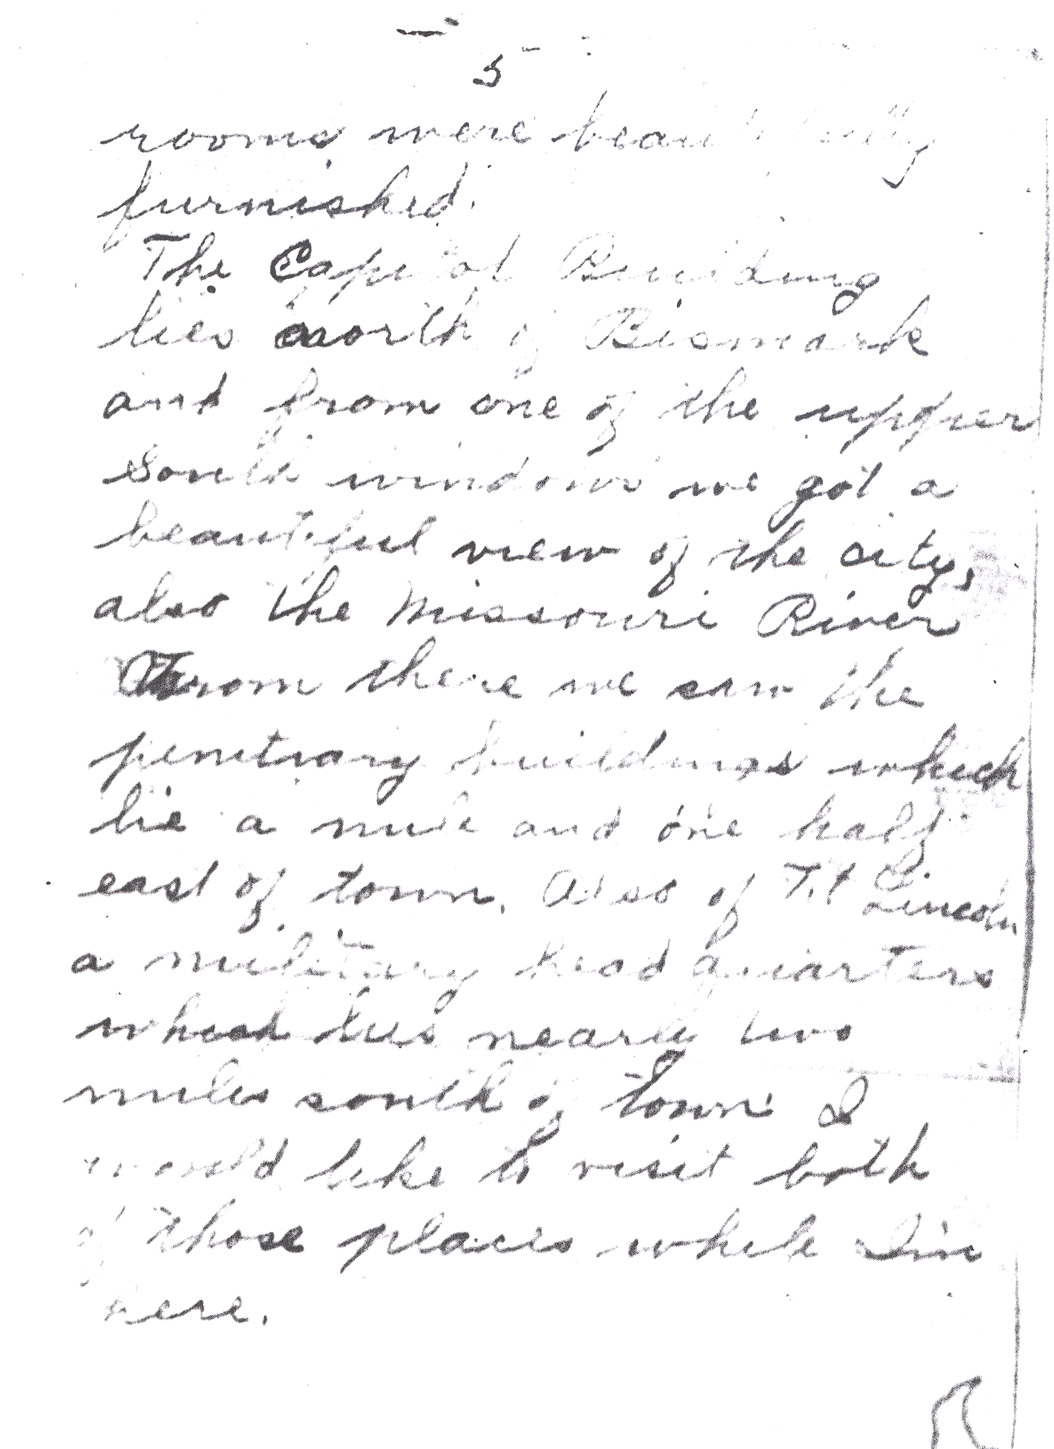 5
rooms were beautifully
furnished.
The Capitol Building
lies north of Bismark
and from one of the upper
south windows we got a
beautiful view of the city,
also the Missouri River
From there we saw the
penitiary buildings which
lie a mile and one half
east of town. Also of Ft Lincoln
a military head quarters
which lies nearly two
miles south of town I
would like to visit both
of those places while I'm
here.
R